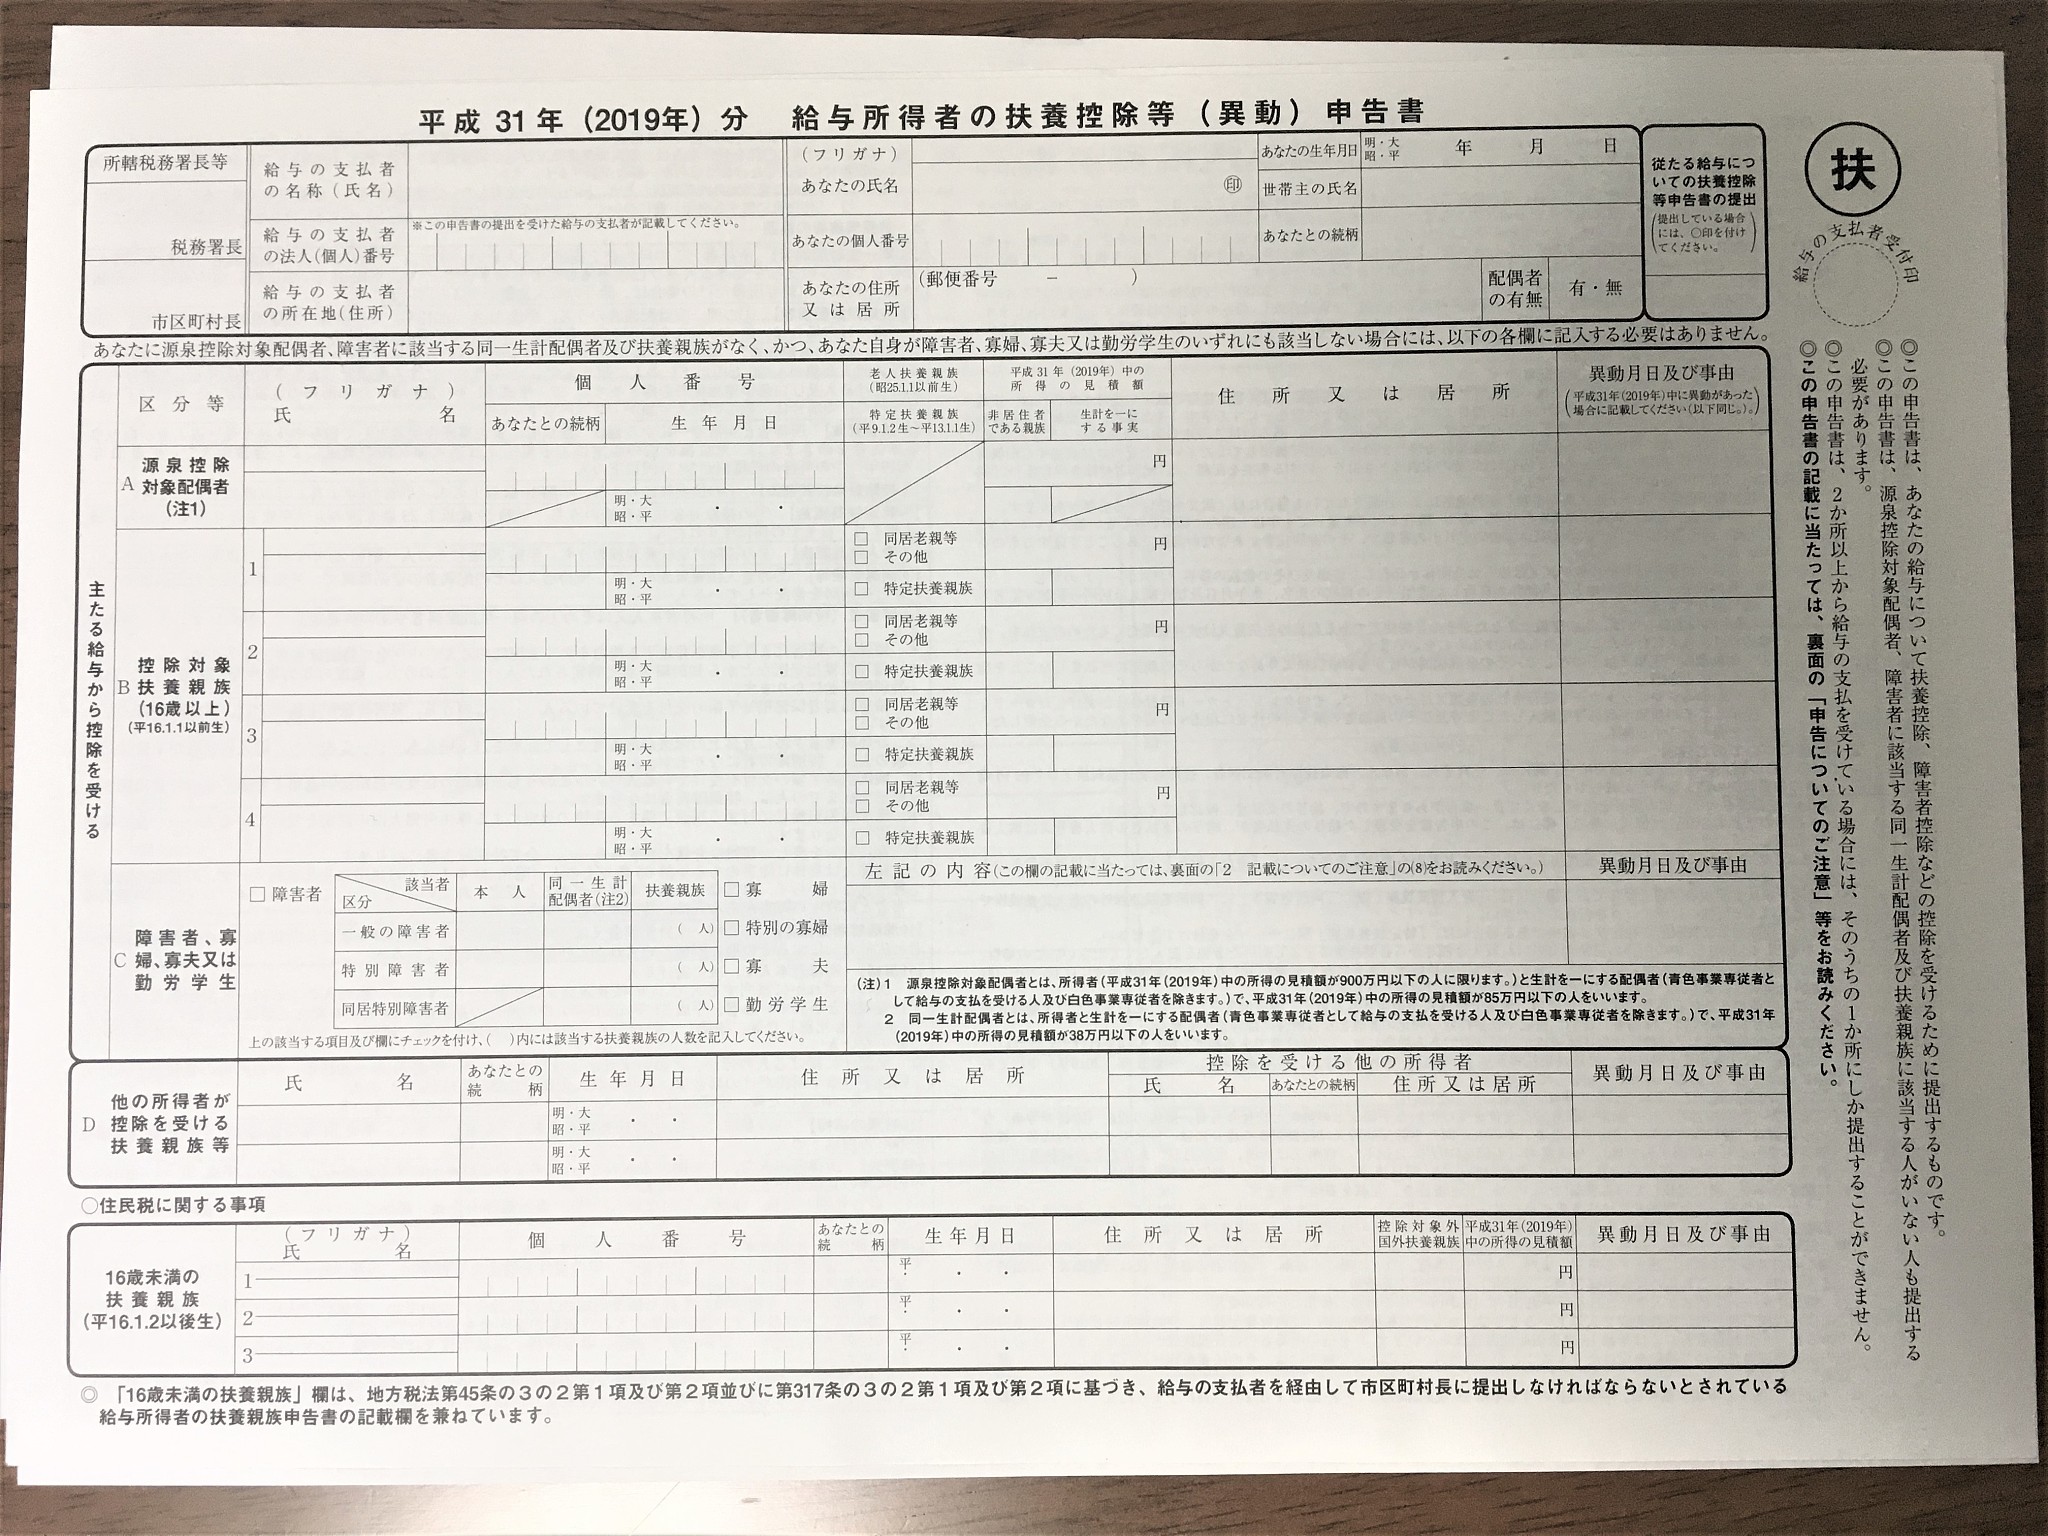 平成 31 年（2019年）分　給与所得者の扶養控除等（異動）申告書
所轄税務署長等
税務署長
市区町村長
給与の支払者
の名称（氏名）
給与の支払者
の法人（個人）番号
※この申告書の提出を受けた給与の支払者が記載してください。
給与の支払者
の所在地（住所）
（フリガナ）
あなたの氏名
㊞
あなたの個人番号
あなたの住所
又は居所
（郵便番号　－　）
あなたの生年月日
明・大
昭・平
年　月　日
世帯主の氏名
あなたとの続柄
配偶者
の有無
有・無
従たる給与につ
いての扶養控除
等申告書の提出
（提出している場合
には、○印を付け
てください。）
扶
給与の支払者受付印
あなたに源泉控除対象配偶者、障害者に該当する同一生計配偶者及び扶養親族がなく、かつ、あなた自身が障害者、寡婦、寡夫又は勤労学生のいずれにも該当しない場合には、以下の各欄に記入する必要はありません。
主たる給与から控除を受ける
区分等
（フリガナ）
氏名
個人番号
あなたとの続柄
生年月日
老人扶養親族
（昭25.1.1以前生）
特定扶養親族
（平9.1.2生～平13.1.1生）
平成31年（2019年）中の
所得の見積額
非居住者
である親族
生計を一に
する事実
住所又は居所
異動月日及び事由
（平成31年（2019年）中に異動があった
場合に記載してください（以下同じ。）。）
A
源泉控除
対象配偶者
（注1）
明・大
昭・平
・　・
円
B
控除対象
扶養親族
（16歳以上）
（平16.1.1以前生）
1
明・大
昭・平
・　・
□ 同居老親等
□ その他
□ 特定扶養親族
円
2
明・大
昭・平
・　・
□ 同居老親等
□ その他
□ 特定扶養親族
円
3
明・大
昭・平
・　・
□ 同居老親等
□ その他
□ 特定扶養親族
円
4
明・大
昭・平
・　・
□ 同居老親等
□ その他
□ 特定扶養親族
円
C
障害者、寡
婦、寡夫又は
勤労学生
□ 障害者
該当者
区分
本人
同一生計
配偶者（注2）
扶養親族
一般の障害者
（　人）
特別障害者
（　人）
同居特別障害者
（　人）
□ 寡婦
□ 特別の寡婦
□ 寡夫
□ 勤労学生
上の該当する項目及び欄にチェックを付け、（　）内には該当する扶養親族の人数を記入してください。
左記の内容（この欄の記載に当たっては、裏面の「2　記載についてのご注意」の(8)をお読みください。）
異動月日及び事由
（注）1　源泉控除対象配偶者とは、所得者（平成31年（2019年）中の所得の見積額が900万円以下の人に限ります。）と生計を一にする配偶者（青色事業専従者と
して給与の支払を受ける人及び白色事業専従者を除きます。）で、平成31年（2019年）中の所得の見積額が85万円以下の人をいいます。
2　同一生計配偶者とは、所得者と生計を一にする配偶者（青色事業専従者として給与の支払を受ける人及び白色事業専従者を除きます。）で、平成31年
（2019年）中の所得の見積額が38万円以下の人をいいます。
D
他の所得者が
控除を受ける
扶養親族等
氏名
あなたとの
続柄
生年月日
住所又は居所
控除を受ける他の所得者
氏名
あなたとの続柄
住所又は居所
異動月日及び事由
明・大
昭・平
・　・
明・大
昭・平
・　・
○住民税に関する事項
16歳未満の
扶養親族
（平16.1.2以後生）
（フリガナ）
氏名
個人番号
あなたとの
続柄
生年月日
住所又は居所
控除対象外
国外扶養親族
平成31年（2019年）
中の所得の見積額
異動月日及び事由
1
平
・　・　・
円
2
平
・　・　・
円
3
平
・　・　・
円
◎「16歳未満の扶養親族」欄は、地方税法第45条の３の２第１項及び第２項並びに第317条の３の２第１項及び第２項に基づき、給与の支払者を経由して市区町村長に提出しなければならないとされている
給与所得者の扶養親族申告書の記載欄を兼ねています。
◎この申告書は、あなたの給与について扶養控除、障害者控除などの控除を受けるために提出するものです。
◎この申告書は、源泉控除対象配偶者、障害者に該当する同一生計配偶者及び扶養親族に該当する人がいない人も提出する
必要があります。
◎この申告書は、２か所以上から給与の支払を受けている場合には、そのうちの１か所にしか提出することができません。
◎この申告書の記載に当たっては、裏面の「申告についてのご注意」等をお読みください。